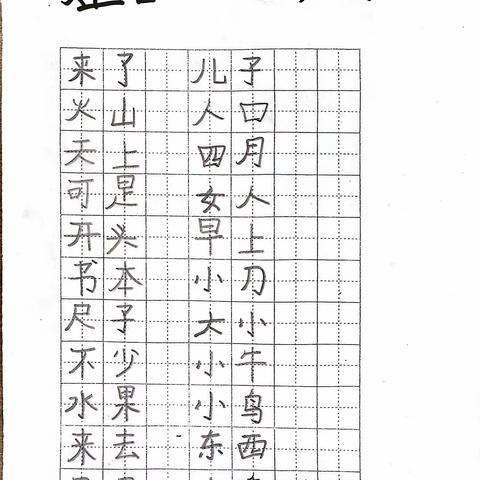 来了 儿子
火山 人口
天上 四月
可是 女人
开头 早上
书本 小刀
尺子 大小
不少 小牛
水果 小鸟
来去 东西